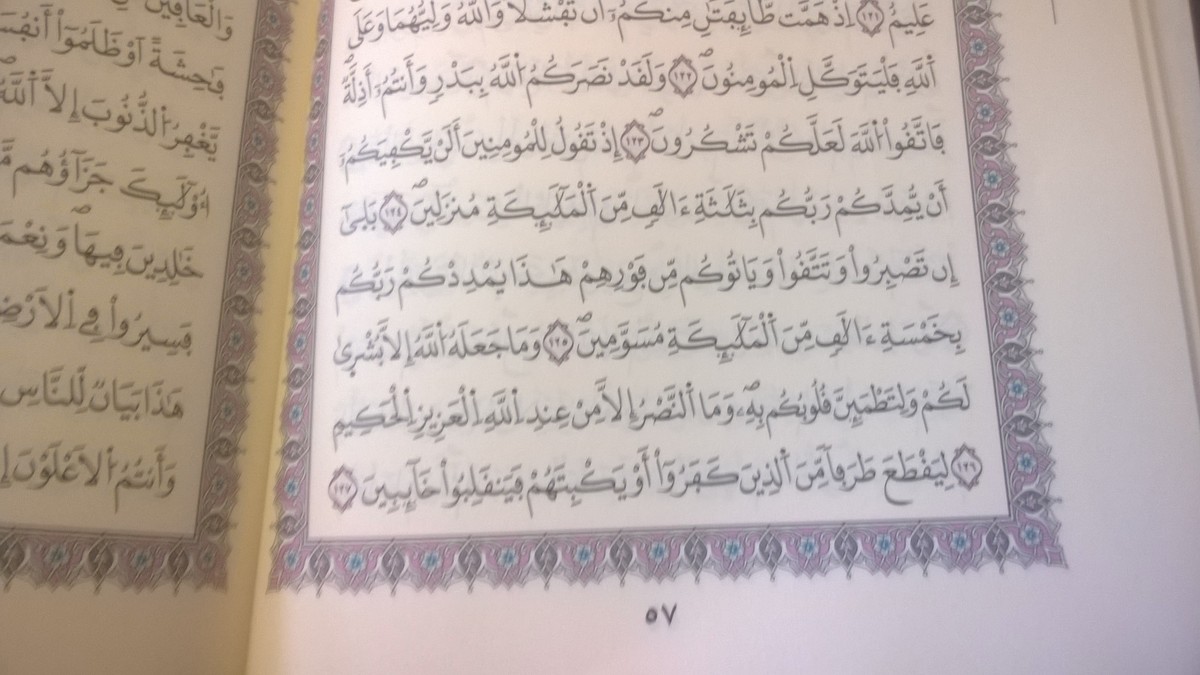 عَلِيمٌ ١٢١ إِذْ هَمَّت طَّآئِفَتَٰنِ مِنكُمُۥٓ أَن تَفْشَلَا وَاللَّهُ وَلِيُّهُمَا وَعَلَى
اَ۬للَّهِ فَلْيَتَوَكَّلِ اِ۬لْمُومِنُونَۖ ١٢٢ وَلَقَدْ نَصَرَكُمُ اُ۬للَّهُ بِبَدْرٖ وَأَنتُمُۥٓ أَذِلَّةٞۖ
فَاتَّقُواْ اُ۬للَّهَ لَعَلَّكُمْ تَشْكُرُونَۖ ١٢٣ إِذْ تَقُولُ لِلْمُومِنِينَ أَلَنْ يَّكْفِيَكُمُۥٓ
أَنْ يُّمِدَّكُمْ رَبُّكُم بِثَلَٰثَةِ ءَالَٰفٖ مِّنَ اَ۬لْمَلَٰٓئِكَةِ مُنزَلِينَۖ ١٢٤ بَلَىٰٓ
إِن تَصْبِرُواْ وَتَتَّقُواْ وَيَاتُوكُم مِّن فَوْرِهِمْ هَٰذَا يُمْدِدْكُمْ رَبُّكُم
بِخَمْسَةِ ءَالَٰفٖ مِّنَ اَ۬لْمَلَٰٓئِكَةِ مُسَوَّمِينَۖ ١٢٥ وَمَا جَعَلَهُ اُ۬للَّهُ إِلَّا بُشْر۪ىٰ
لَكُمْ وَلِتَطْمَئِنَّ قُلُوبُكُم بِهِۦۖ وَمَا اَ۬لنَّصْرُ إِلَّا مِنْ عِندِ اِ۬للَّهِ اِ۬لْعَزِيزِ اِ۬لْحَكِيمِ
١٢٦ لِيَقْطَعَ طَرَفاٗ مِّنَ اَ۬لذِينَ كَفَرُوٓاْ أَوْ يَكْبِتَهُمْ فَيَنقَلِبُواْ خَآئِبِينَ ١٢٧
٥٧
وَالْعَافِينَ
فَٰحِشَةً اَوْ ظَلَمُوٓاْ أَنفُسَ
يَّغْفِرُ اُ۬لذُّنُوبَ إِلَّا اَ۬للَّهُ
أُوْلَٰٓئِكَ جَزَآؤُهُم مَّ
خَٰلِدِينَ فِيهَاۖ وَنِعْمَ
فَسِيرُواْ فِي اِ۬لَارْضِ
هَٰذَا بَيَانٞ لِّلنَّاسِ
وَأَنتُمُ اُ۬لَاعْلَوْنَ إِ